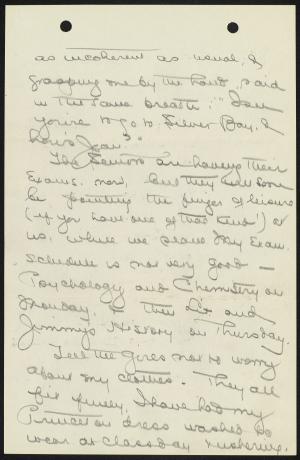 as incoherent as usual, &
grasping me by the hand, said
in the same breath: "Sam
you're to go to Silver Bay, &
how's Jean?"
The Seniors are having their
Exams. now, but they will soon
be pointing the finger of leisure
(if you have one of that kind!) at
us, while we slave. My Exam.
schedule is not very good —
Psychology and Chemistry on
Monday, & then Lit and
Jimmy's History on Thursday.
Tell the girls not to worry
about my clothes. They all
fit finely. I have had my
Princeton dress washed to
wear at Classday & ushering,